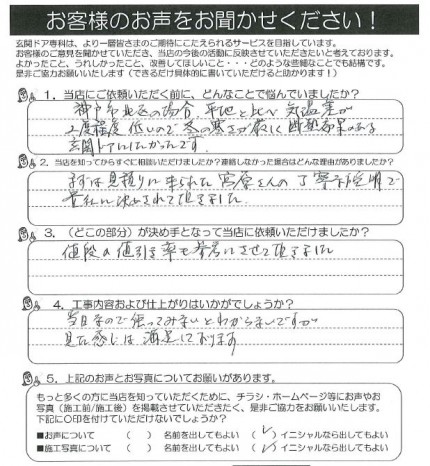 お客様のお声をお聞かせください！
玄関ドア専科は、より一層皆さまのご期待にこたえられるサービスを目指しています。
お客様のご意見を聞かせていただき、当店の今後の活動に反映させていただきたいと考えております。
よかったこと、うれしかったこと、改善してほしいこと・・・どのような些細なことでも結構です。
是非ご協力お願いいたします（できるだけ具体的に書いていただけると助かります！）
1．当店にご依頼いただく前に、どんなことで悩んでいましたか？
神戸市北区の場合、平地と比べ気温差が
2度程度低いので冬の寒さが厳しく断熱効果のある
玄関ドアにしたかったです。
2．当店を知ってからすぐに相談いただけましたか？連絡しなかった場合はどんな理由がありましたか？
まずは見積りに来られた宮原さんの丁寧な説明で
貴社に決めさせて頂きました
3．（どこの部分）が決め手となって当店に依頼いただけましたか？
値段の値引き率も参考にさせて頂きました
4．工事内容および仕上がりはいかがでしょうか？
当日なので使ってみないとわからないですが
見た感じは満足しております
5．上記のお声とお写真についてお願いがあります。
もっと多くの方に当店を知っていただくために、チラシ・ホームページ等にお声やお
写真（施工前/施工後）を掲載させていただきたく、是非ご協力をお願いいたします。
下記に○印を付けていただけないでしょうか？
■お声について （ ） 名前を出してもよい （✓）イニシャルなら出してもよい
■お写真について （ ） 名前を出してもよい （ ）イニシャルなら出してもよい